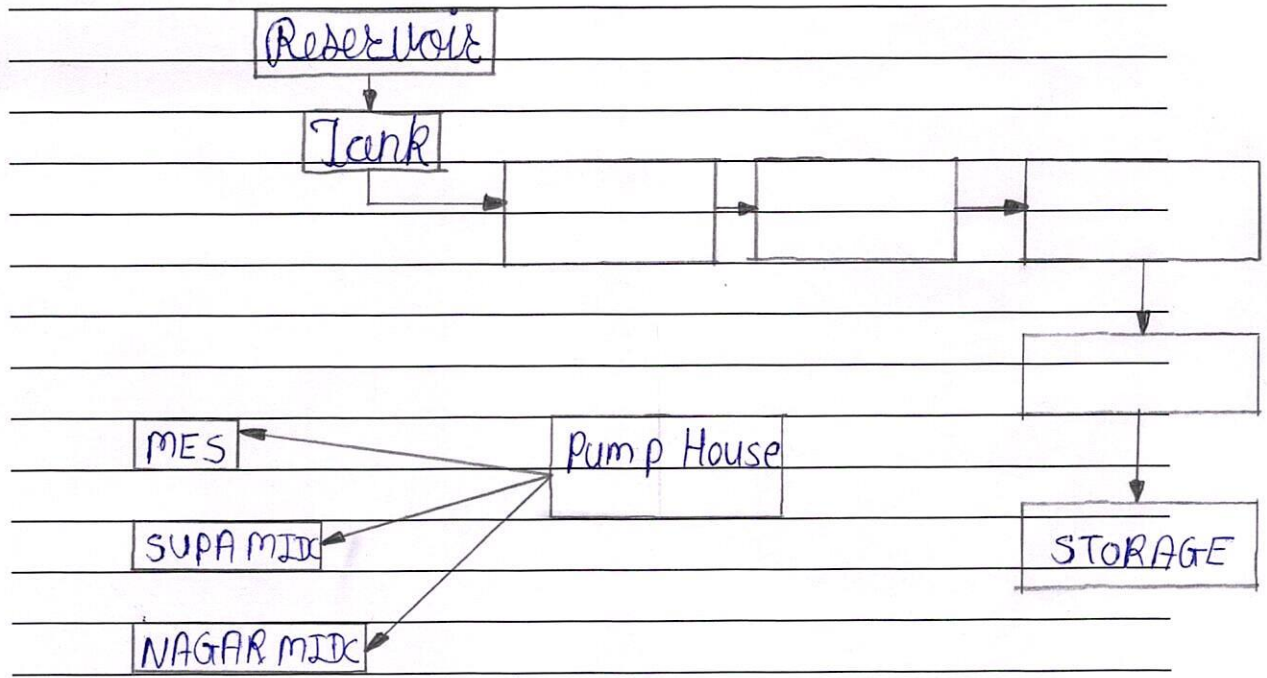 Reservoir
Tank
MES
Pump House
SUPA MIDC
STORAGE
NAGAR MIDC